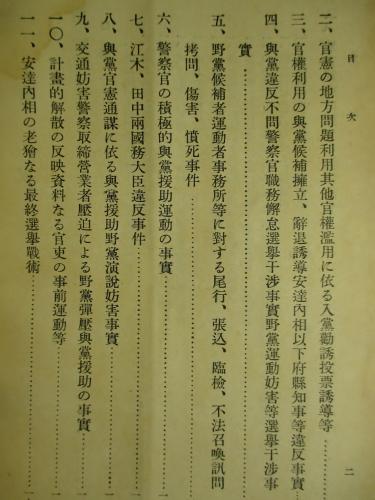 目次
二、官憲の地方問題利用其他官權濫用に依る入黨勸誘投票誘導等
三、官權利用の與黨候補擁立、辭退誘導安達內相以下府縣知事等違反事實
四、與黨違反不問警察官職務懈怠選擧干渉事實野黨運動妨害等選擧干渉事
實
五、野黨候補者運動者事務所等に對する尾行、張込、臨檢、不法召喚訊問
拷問、傷害、憤死事件
六、警察官の積極的與黨援助運動の事實
七、江木、田中兩國務大臣違反事件
八、與黨官憲通謀に依る與黨援助野黨演說妨害事實
九、交通妨害警察取締營業者壓迫による野黨彈壓與黨援助の事實
一〇、計畫的解散の反映資料なる官吏の事前運動等
一一、安達內相の老獪なる最終選擧戰術
二